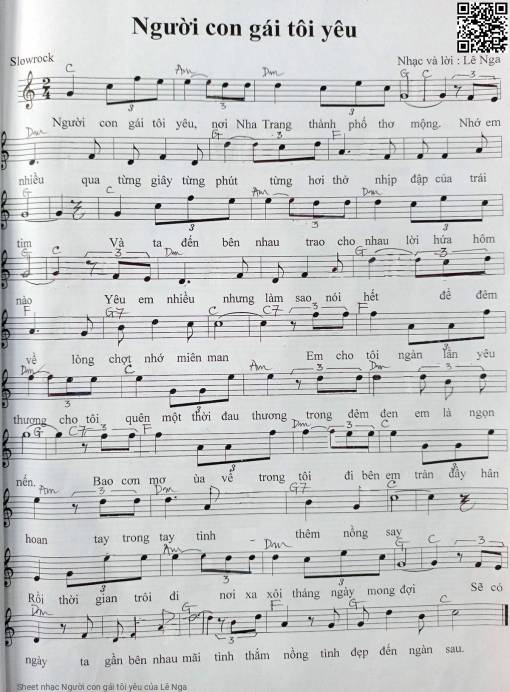 Người con gái tôi yêu
Slowrock
Nhạc và lời : Lê Nga
C Am Dm G C 3
2
4
3 3 3
Người con gái tôi yêu, nơi Nha Trang thành phố thơ mộng. Nhớ em
Dm G 3 F
nhiều qua từng giây từng phút từng hơi thở nhịp đập của trái
G C Am Dm
3 3 3
tim Và ta đến bên nhau trao cho nhau lời hứa hôm
G C 3 Dm G 3
nào Yêu em nhiều nhưng làm sao nói hết để đêm
F G7 C C7 3 F
3
về lòng chợt nhớ miên man Em cho tôi ngàn lần yêu
Dm C Am 3 Dm 3
3
thương cho tôi quên một thời đau thương trong đêm đen em là ngọn
G C7 3 F Dm 3 C
3 3
nến. Bao cơn mơ ùa về trong tôi đi bên em tràn đầy hân
Am 3 Dm G7 C
hoan tay trong tay tình - thêm nồng say
Am Dm G C 3
3 3 3
Rồi thời gian trôi đi nơi xa xôi tháng ngày mong đợi Sẽ có
Dm Am G F G C
ngày ta gần bên nhau mãi tình thắm nồng tình đẹp đến ngàn sau.
Sheet nhạc Người con gái tôi yêu của Lê Nga